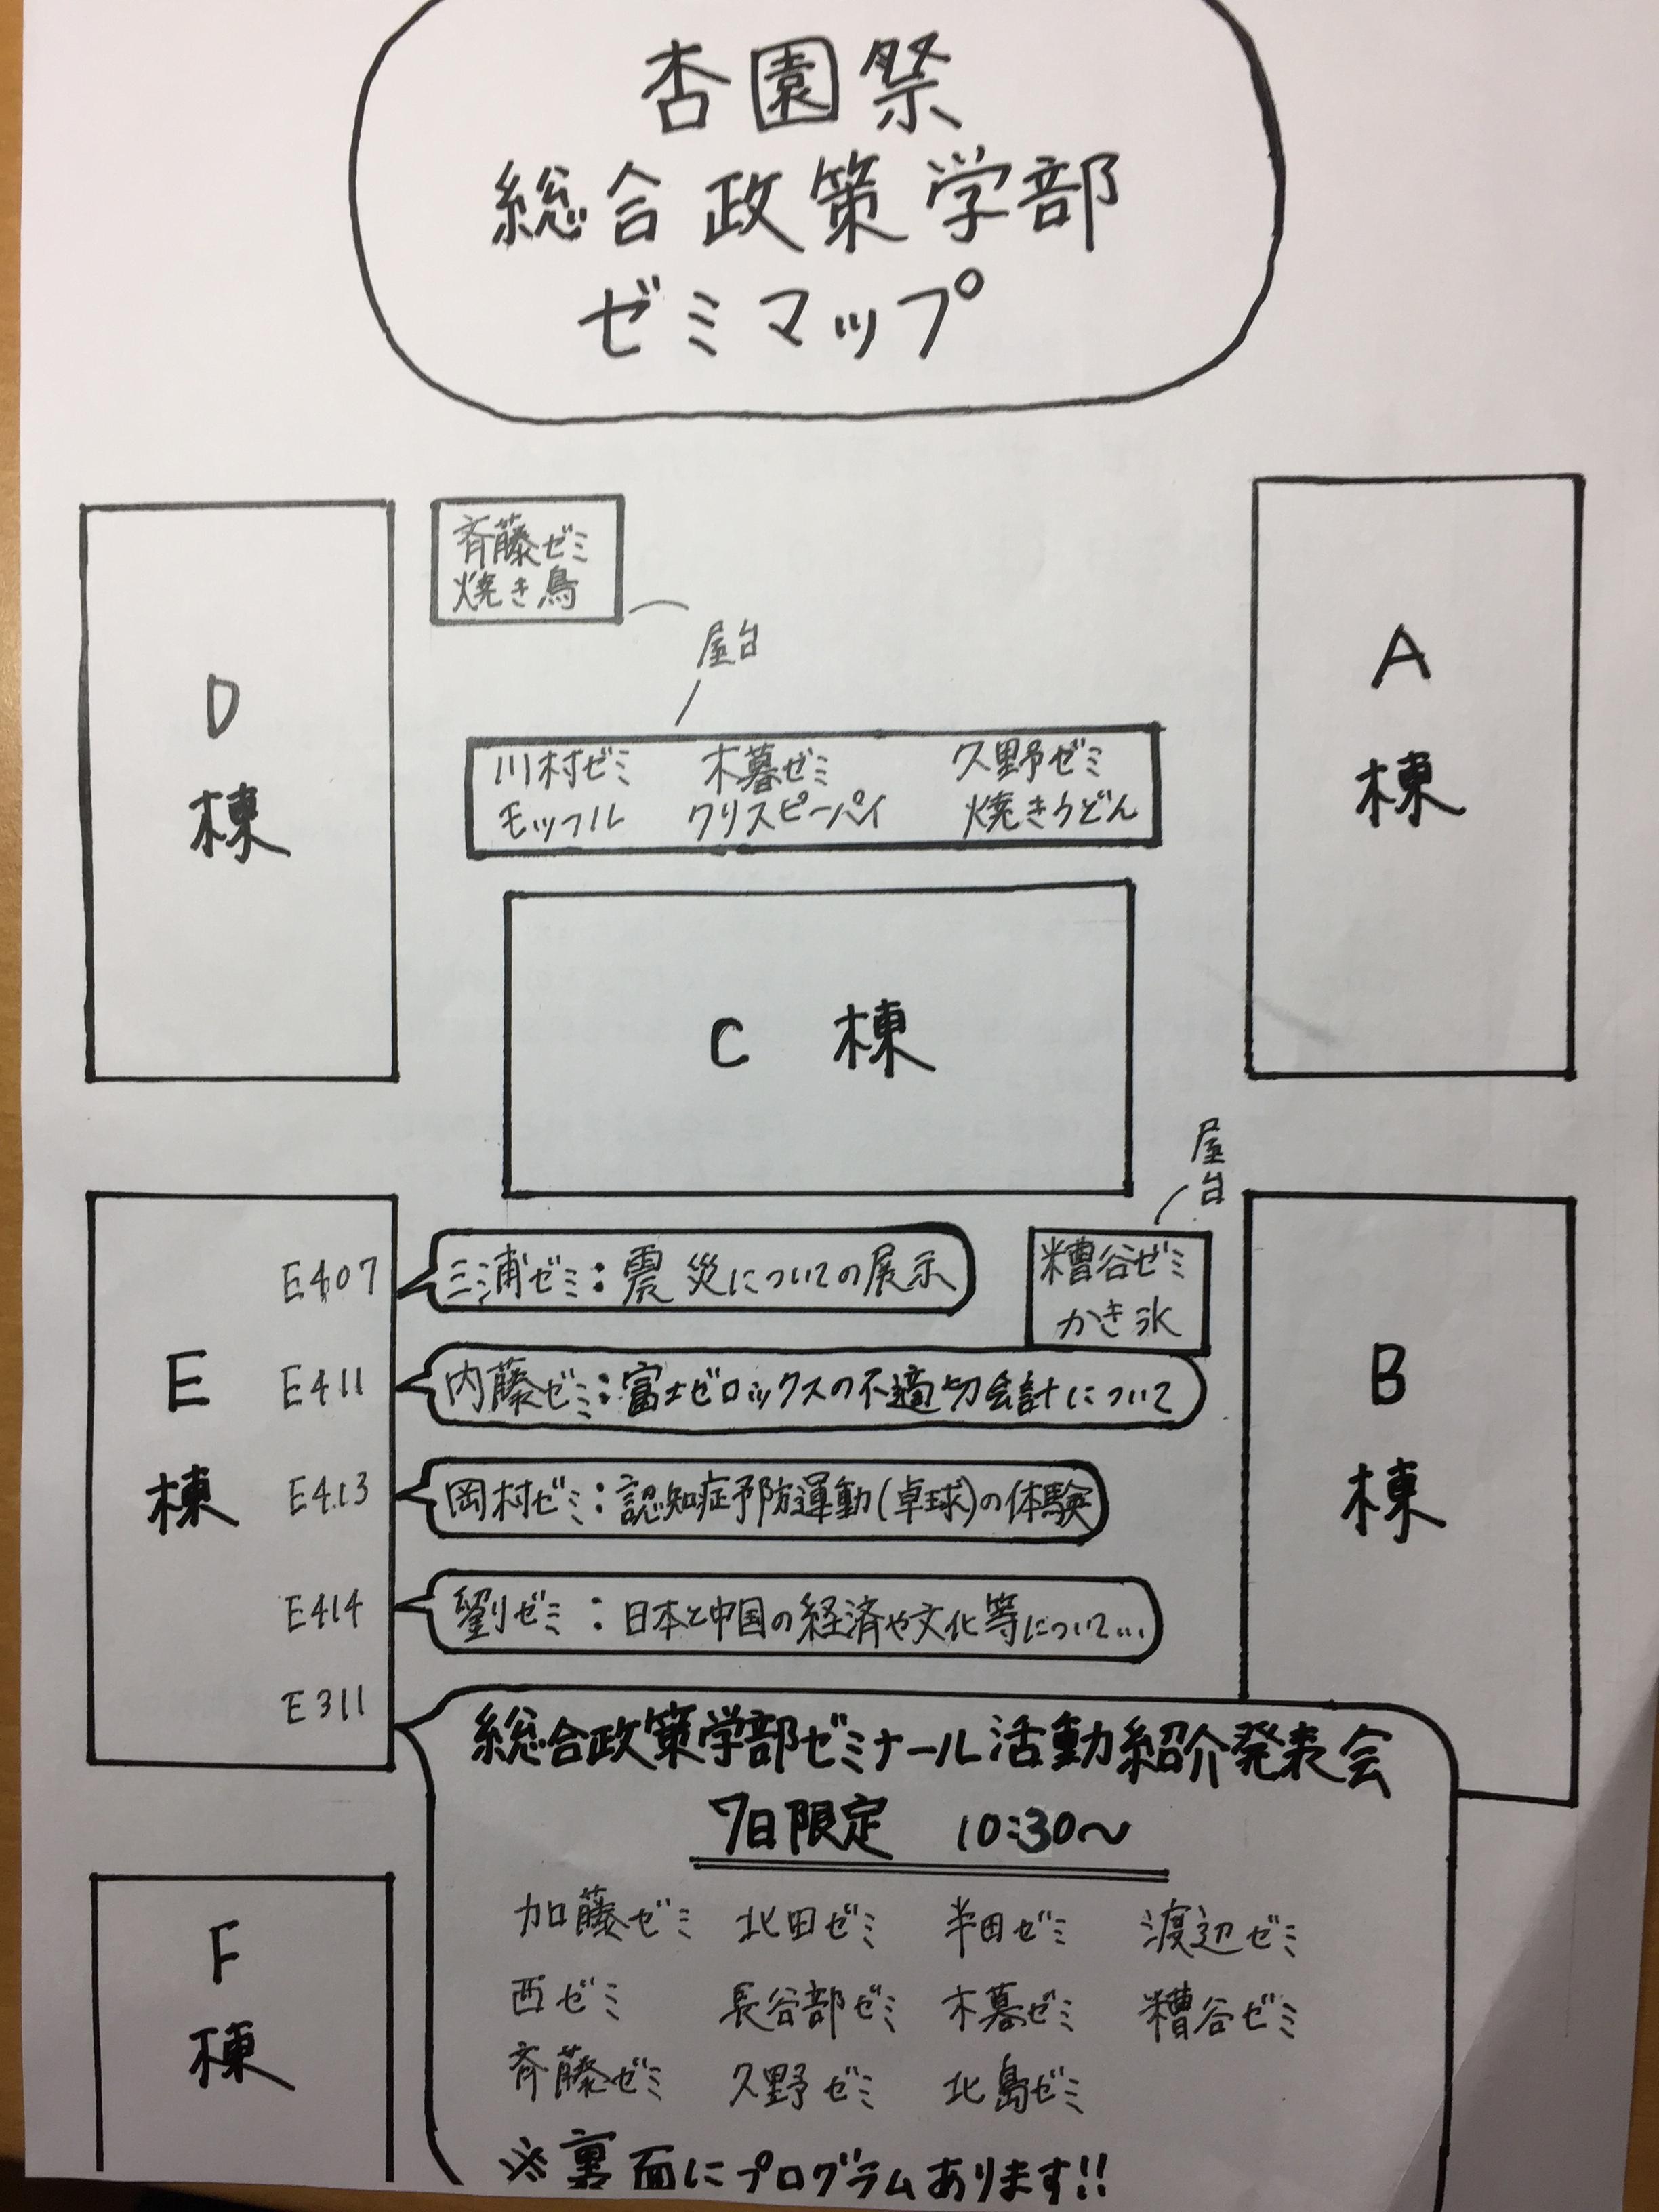 杏園祭
総合政策学部
ゼミマップ
斉藤ゼミ
焼き鳥
屋台
D
棟
A
棟
川村ゼミ 木暮ゼミ 久野ゼミ
モッフル クリスピーパイ 焼きうどん
C 棟
屋台
糟谷ゼミ
かき氷
E
棟
E407 三浦ゼミ:震災についての展示
E411 内藤ゼミ:富士ゼロックスの不適切会計について
E413 岡村ゼミ:認知症予防運動(卓球)の体験
E414 劉ゼミ:日本と中国の経済や文化等について…
E311
B
棟
総合政策学部ゼミナール活動紹介発表会
7日限定 10:30〜
加藤ゼミ 北田ゼミ 半田ゼミ 渡辺ゼミ
西ゼミ 長谷部ゼミ 木暮ゼミ 糟谷ゼミ
斉藤ゼミ 久野ゼミ 北島ゼミ
※裏面にプログラムあります!!
F
棟